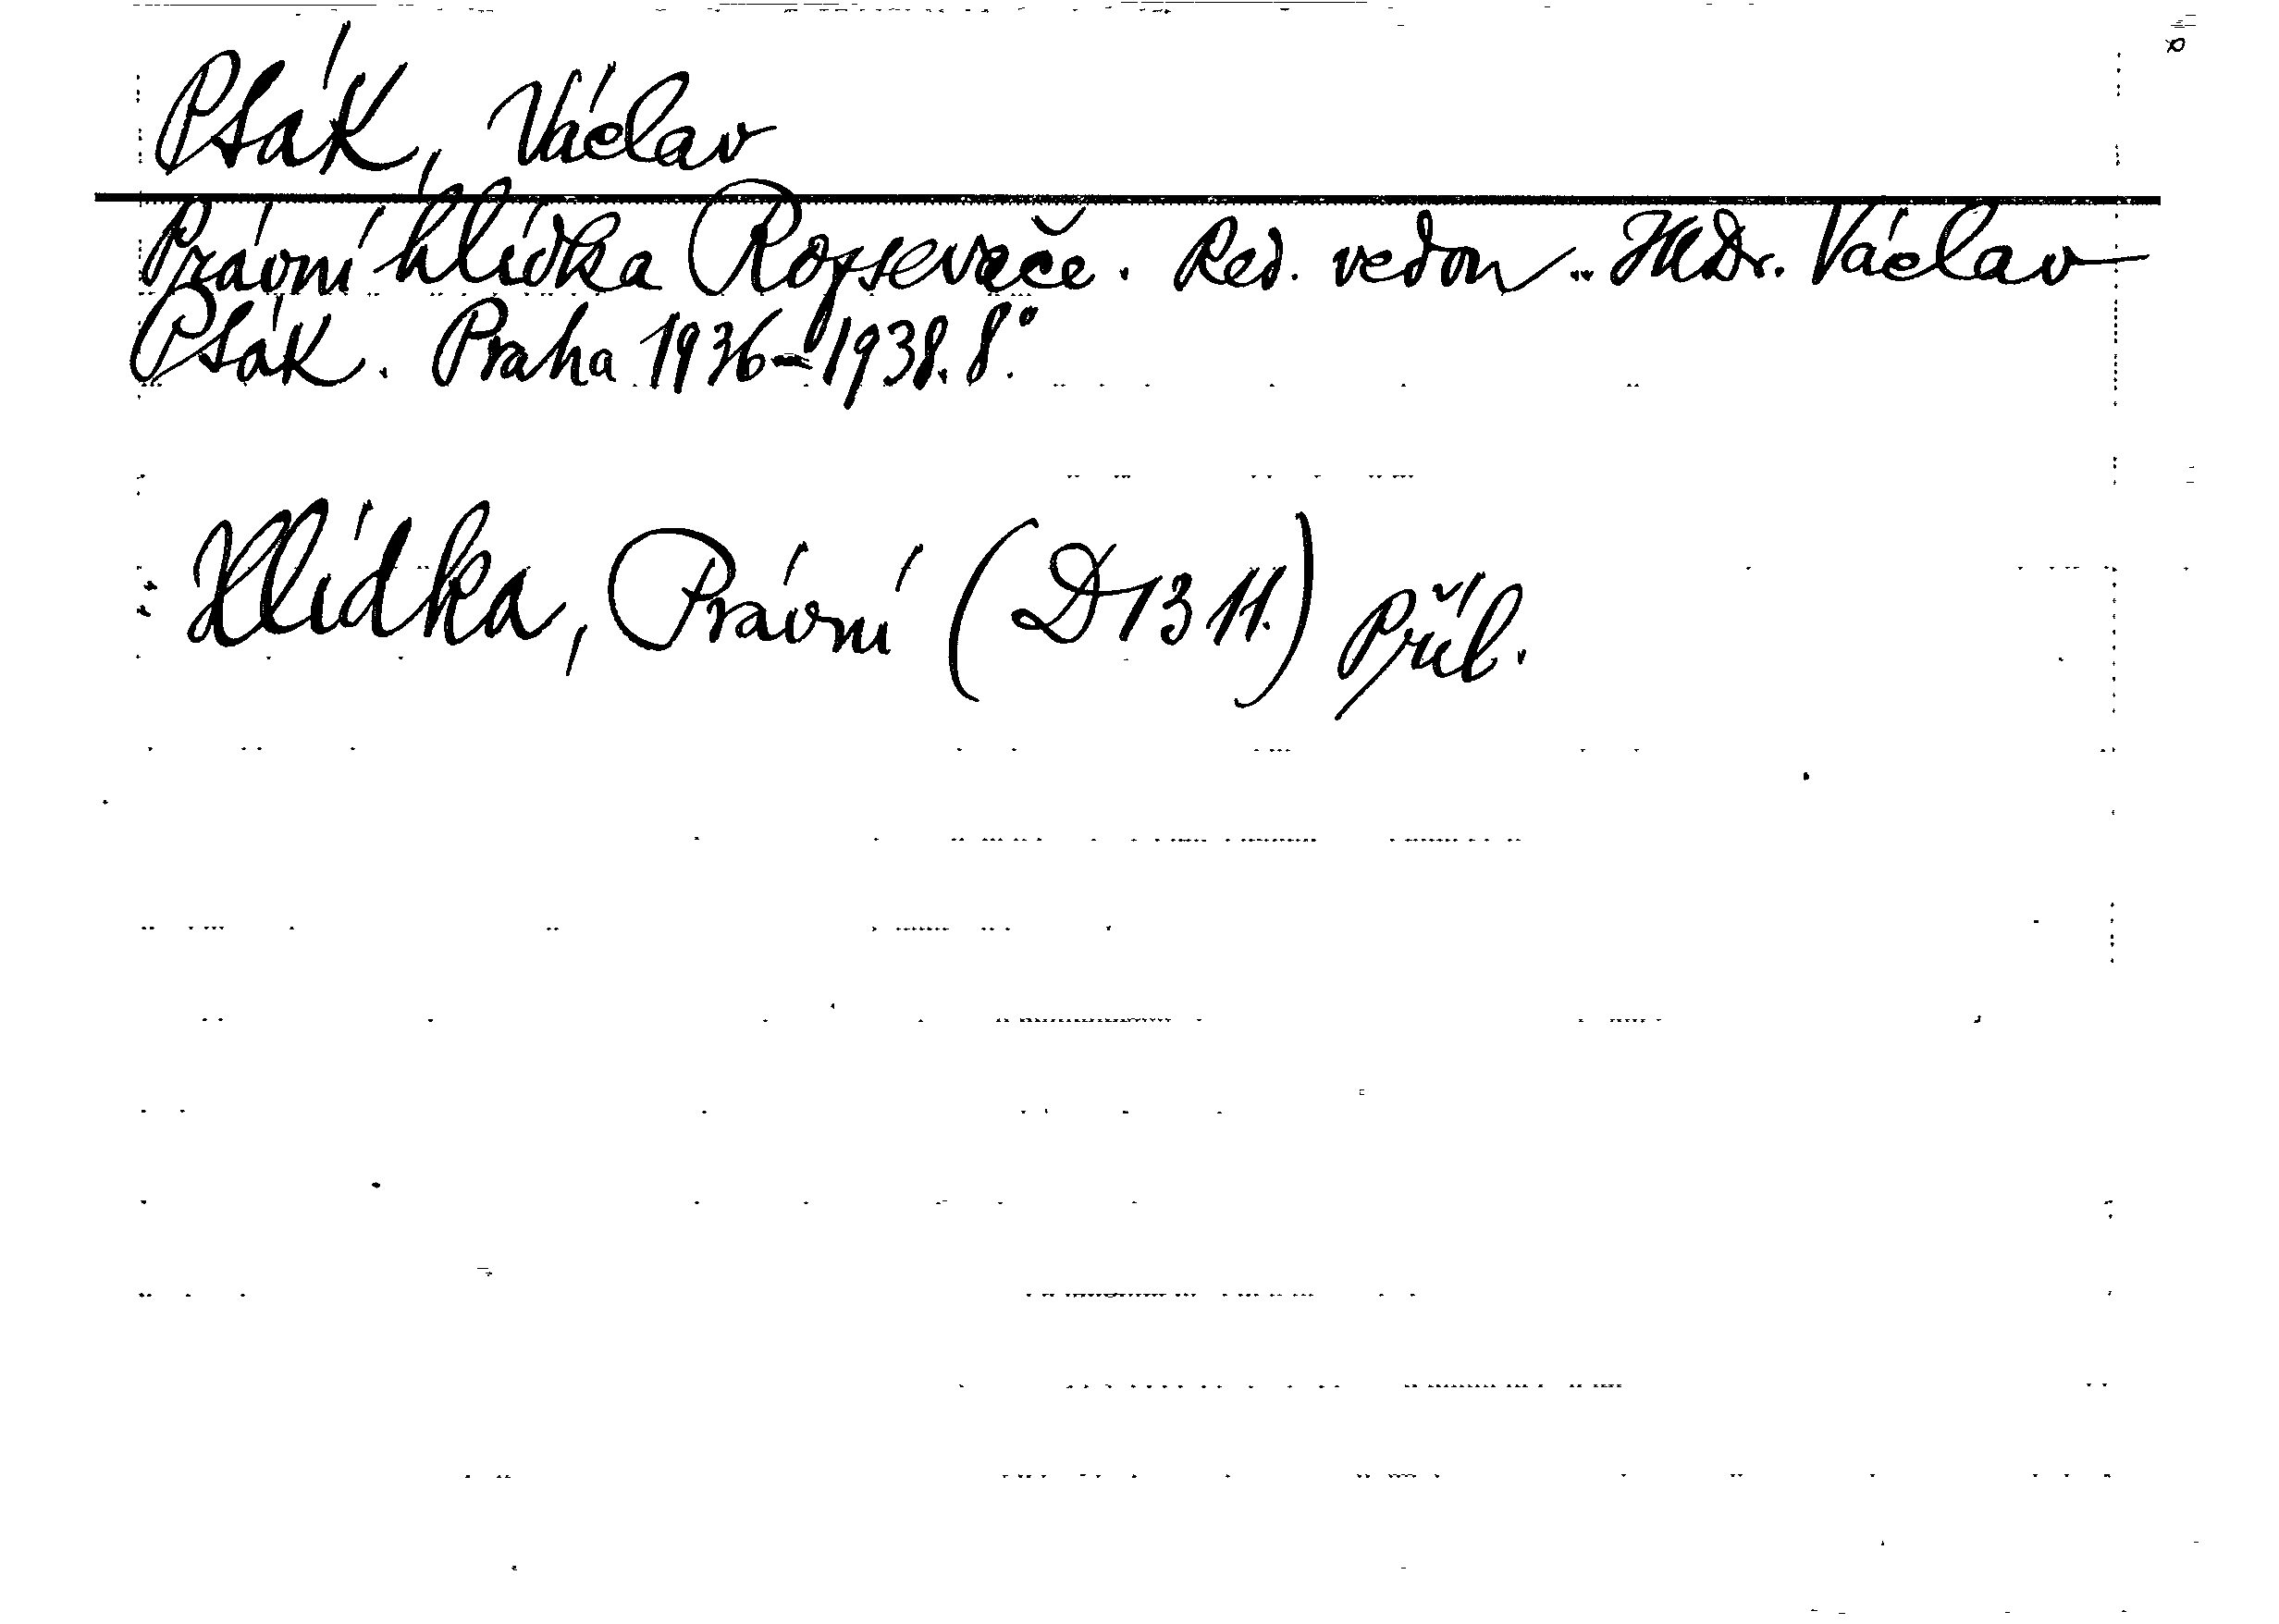 Pták, Václav
Právní hlídka Rozsevače. Red. vedou .. JUDr. Václav
Pták. Praha 1936–1938. 8°.
Hlídka, Právní (D 1311.) Příl.